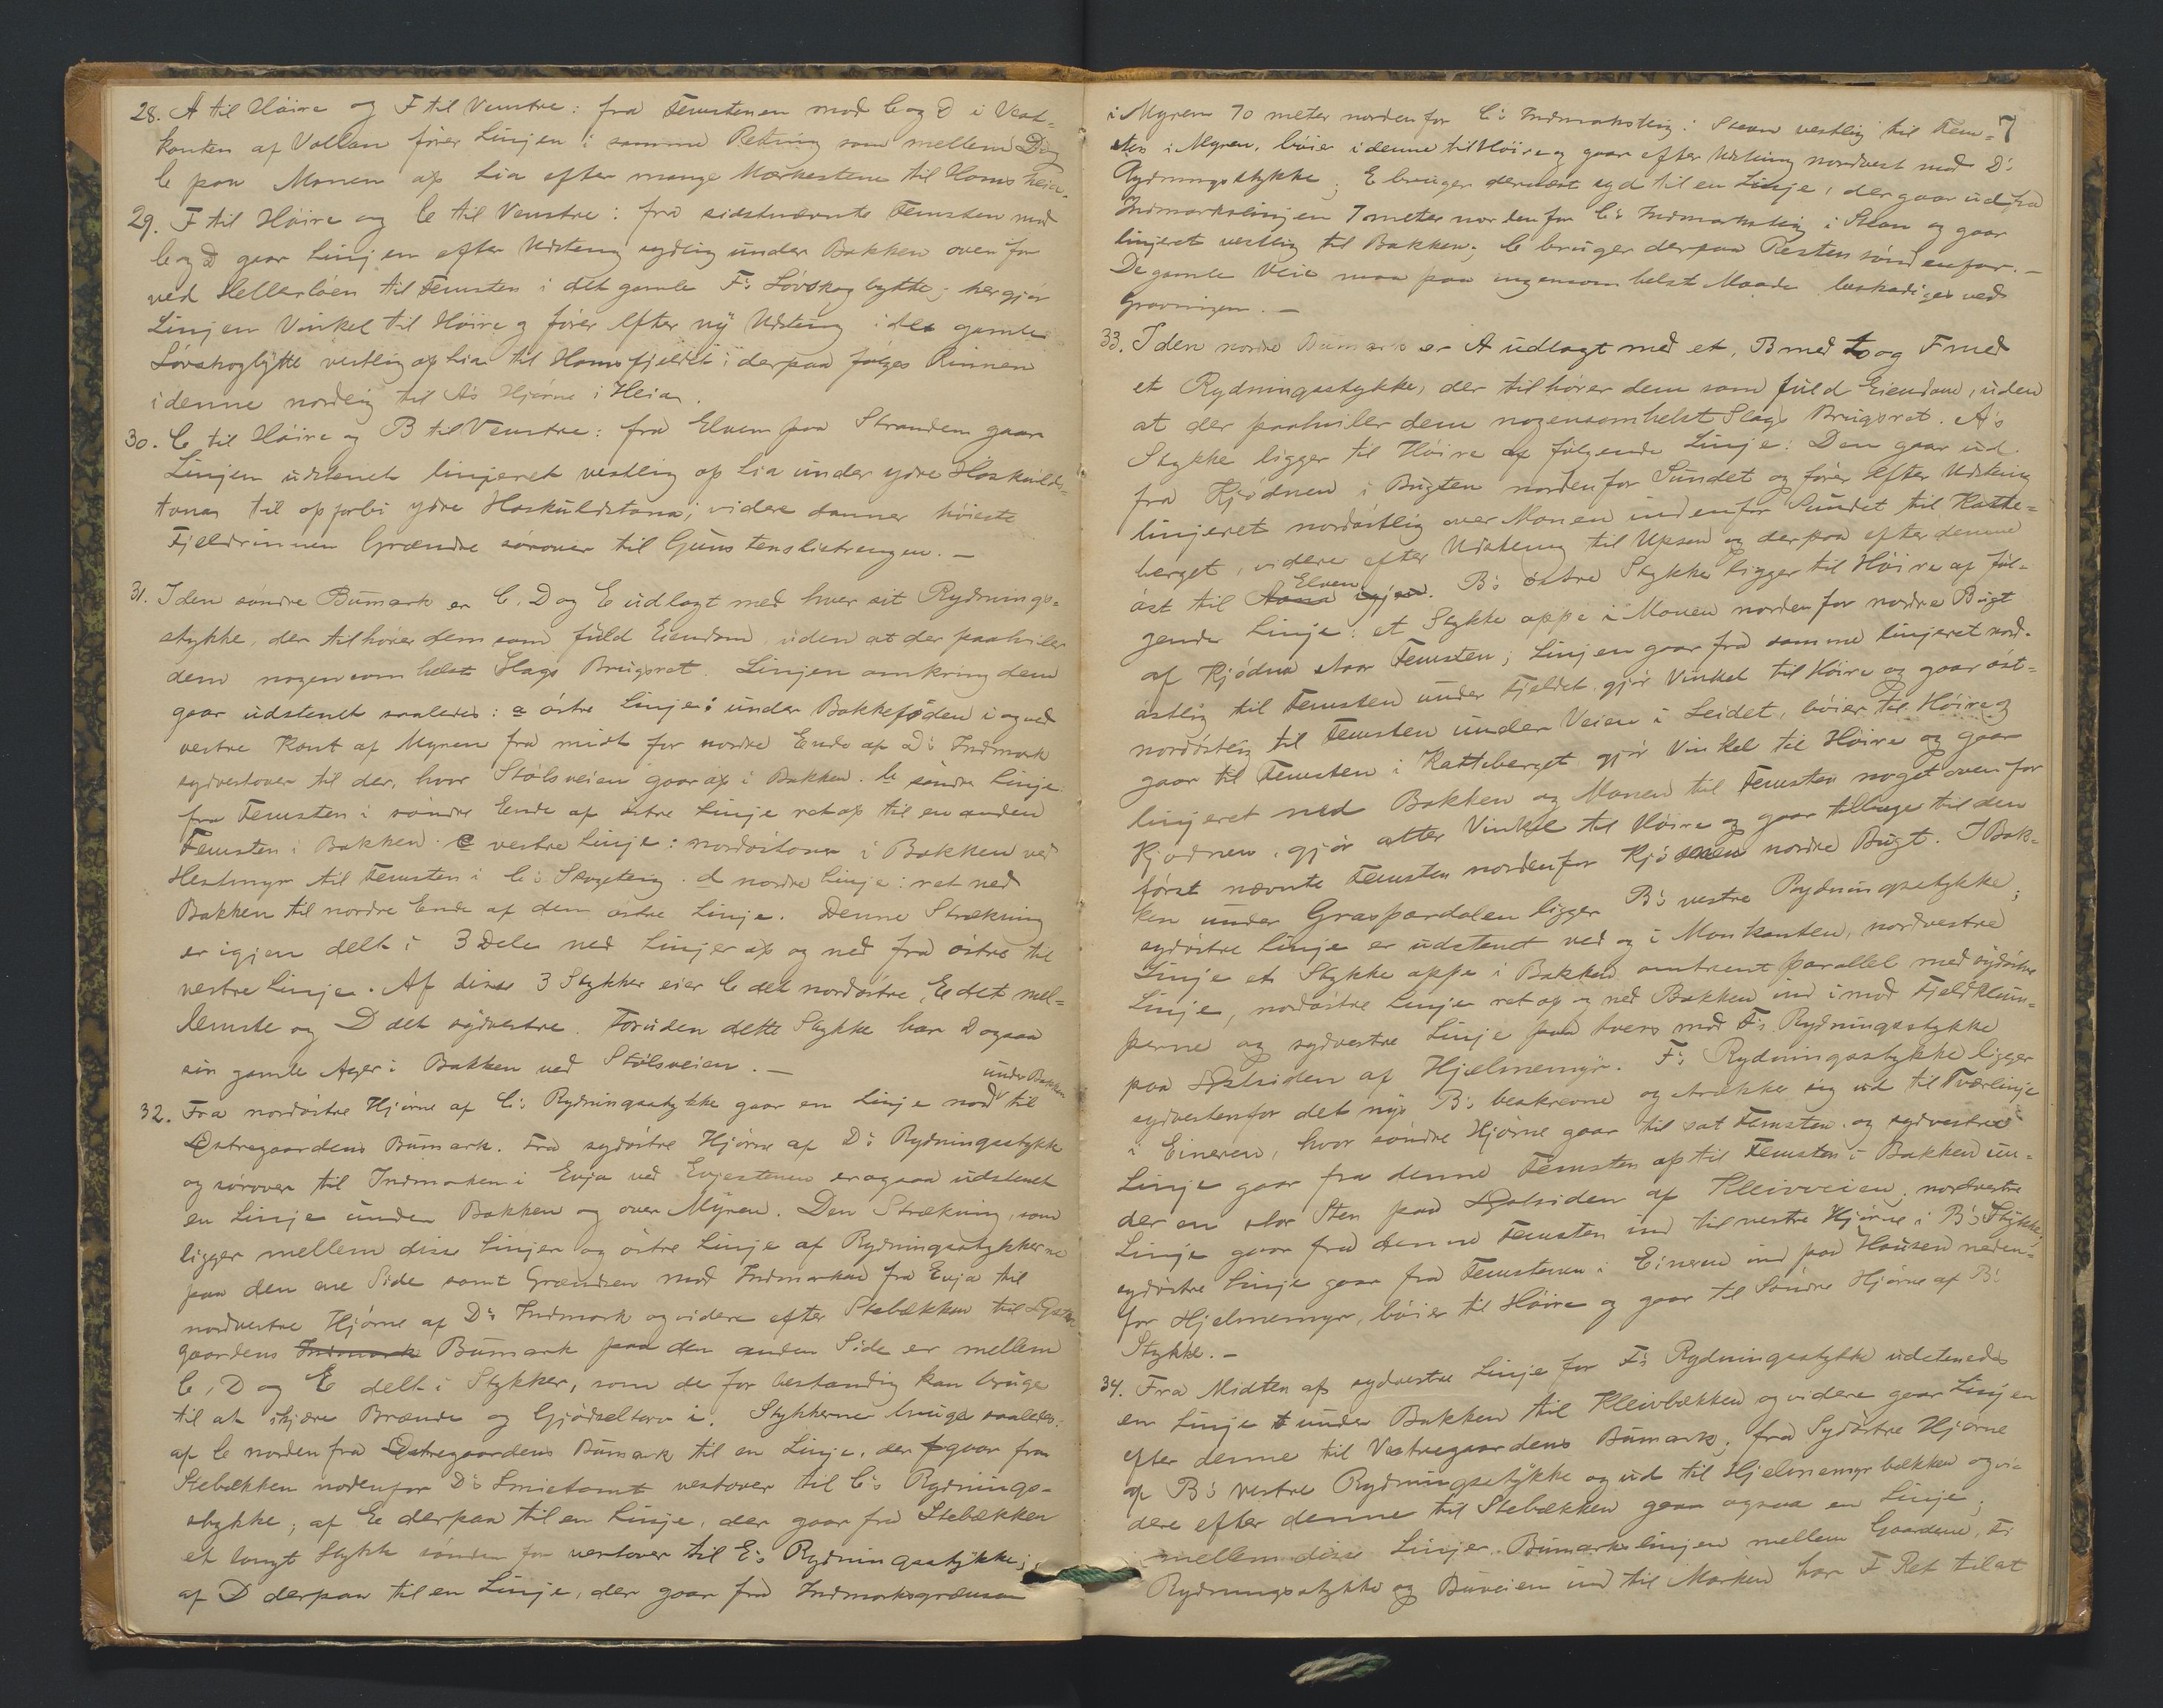 28. A til Høire og F til Venstre: fra Temstenen mod C og D i Vest-
kanten af Vollan fører Linjen i samme Retning som mellem D og
C paa Monen op Lia efter mange Mærkestene til Homsheia.
29. F til Høire og C til Venstre: fra sidstnævnte Temsten mod
C og D gaar Linjen efter Udstening sydlig under Bakken ovenfor
ved Hellerløen til Temsten i det gamle F's Løvskogbytte; her gjør
Linjen Vinkel til Høire og fører efter ny Udstening i det gamle
Løvskogbytte vestlig op Lia til Homsfjeldet; derpaa følges Rinnen
i denne nordlig til A's Hjørne i Heia.
30. C til Høire og B til Venstre: fra Elven paa Stranden gaar
Linjen udstenet linjeret vestlig op Lia under ydre Hoskulds-
tona til op forbi ydre Hoskuldstona; videre danner høieste
Fjeldrinnen Grændse sørover til Gunstenslietrengen. —
31. I den søndre Bumark er C, D og E udlagt med hver sit Rydnings-
stykke, der tilhører dem som fuld Eiendom, uden at der paahviler
dem nogensomhelst Slags Brugsret. Linjen omkring dem
gaar udstenet saaledes: a østre Linje: under Bakkefoden i og ved
vestre Kant af Myren fra midt for nordre Ende af D's Indmark
sydvestover til der, hvor Stølsveien gaar op i Bakken. b søndre Linje
fra Temsten i søndre Ende af østre Linje ret op til en anden
Temsten i Bakken. c vestre Linje: nordøstover i Bakken ved
Hestmyr til Temsten i C's Skogeteig. d nordre Linje: ret ned
Bakken til nordre Ende af den østre Linje. Denne Strækning
er igjen delt i 3 Dele ved Linjer op og ned fra østre til
vestre Linje. Af disse 3 Stykker eier C det nordøstre, E det mel-
lemste og D det sydvestre. Foruden dette Stykke har D ogsaa
sin gamle Ager i Bakken ved Stølsveien. —
32. Fra nordøstre Hjørne af C's Rydningsstykke gaar en Linje nord under Bakken til
Østregaardens Bumark. Fra sydøstre Hjørne af D's Rydningsstykke
og sørover til Indmarken i Evja ved Evjestenen er ogsaa udstenet
en Linje under Bakken og over Myren. Den Strækning, som
ligger mellem disse Linjer og østre Linje af Rydningsstykkerne
paa den ene Side samt Grændsen mod Indmarken fra Evja til
nordvestre Hjørne af D's Indmark og videre efter Stebækken til Østre
gaardens Indmark Bumark paa den anden Side er mellem
C, D og E delt i Stykker, som de for bestandig kan bruge
til at skjære Brænde og Gjødseltorv i. Stykkerne bruges saaledes:
af C norden fra Østregaardens Bumark til en Linje, der gaar fra
Stebækken nordenfor D's Smietomt vestover til C's Rydnings-
stykke; af E derpaa til en Linje, der gaar fra Stebækken
et langt Stykke søndenfor vestover til E's Rydningsstykke;
af D derpaa til en Linje, der gaar fra Indmarksgrænsen
7
i Myren 70 meter nordenfor C's Indmarksteig i Steen vestlig til Tem-
sten i Myren, bøier i denne til Høire og gaar efter Udstening nordvest mod D's
Rydningsstykke; E bruger dernæst syd til en Linje, der gaar ud fra
Indmarkslinjen 7 meter nordenfor C's Indmarksteig i Steen og gaar
linjeret vestlig til Bakken; C bruger derpaa Resten søndenfor. —
De gamle Veie maa paa ingensomhelst Maade beskadiges ved
Gravningen. —
33. I den nordre Bumark er A udlagt med et, B med to og F med
et Rydningsstykke, der tilhører dem som fuld Eiendom, uden
at der paahviler dem nogensomhelst Slags Brugsret. A's
Stykke ligger til Høire af følgende Linje: Den gaar ud
fra Kjødnen i Bugten nordenfor Sundet og fører efter Udstening
linjeret nordøstlig over Monen indenfor Sundet til Katte-
berget, videre efter Udstening til Upsen og derpaa efter denne
øst til Aana igjen. Elven B's østre Stykke ligger til Høire af føl-
gende Linje: et Stykke oppe i Monen nordenfor nordre Bugt
af Kjødna staar Temsten; Linjen gaar fra samme linjeret nord-
østlig til Temsten under Fjeldet, gjør Vinkel til Høire og gaar øst-
nordøstlig til Temsten under Veien i Leidet, bøier til Høire og
gaar til Temsten i Katteberget, gjør Vinkel til Høire og gaar
linjeret ned Bakken og Monen til Temsten noget ovenfor
Kjødnen, gjør atter Vinkel til Høire og gaar tilbage til den
først nævnte Temsten nordenfor Kjødnen nordre Bugt. I Bak-
ken under Graspardalen ligger B's vestre Rydningsstykke;
sydøstre Linje er udstenet ved og i Monkanten, nordvestre
Linje et Stykke oppe i Bakken omtrent parallel med sydøstre
Linje, nordøstre Linje ret op og ned Bakken ind imod Fjeldklum-
perne og sydvestre Linje paa tvers mod F's Rydningsstykke
paa Østsiden af Hjelmemyr. F's Rydningsstykke ligger
sydvestenfor det nys B's beskrevne og strækker sig ud til Tværlinje
i Eineren, hvor søndre Hjørne gaar til sat Temsten, og sydvestre
Linje gaar fra denne Temsten op til Temsten i Bakken un-
der en stor Sten paa Østsiden af Kleivveien; nordvestre
Linje gaar fra denne Temsten ind til vestre Hjørne i B's Stykke,
sydøstre Linje gaar fra Temstenen i Eineren ind paa Hausen neden-
for Hjelmemyr, bøier til Høire og gaar til Søndre Hjørne af B's
Stykke. —
34. Fra Midten af sydvestre Linje for F's Rydningsstykke udstenedes
en Linje under Bakken til Kleivbækken og videre gaar Linjen
efter denne til Vestregaardens Bumark; fra Sydøstre Hjørne
af B's vestre Rydningsstykke og ud til Hjelmemyrbækken og vi-
dere efter denne til Stebækken gaar ogsaa en Linje;
mellem disse Linjer, Bumarkslinjen mellem Gaardene, F's
Rydningsstykke og Buveien ind til Marken har F Ret til at